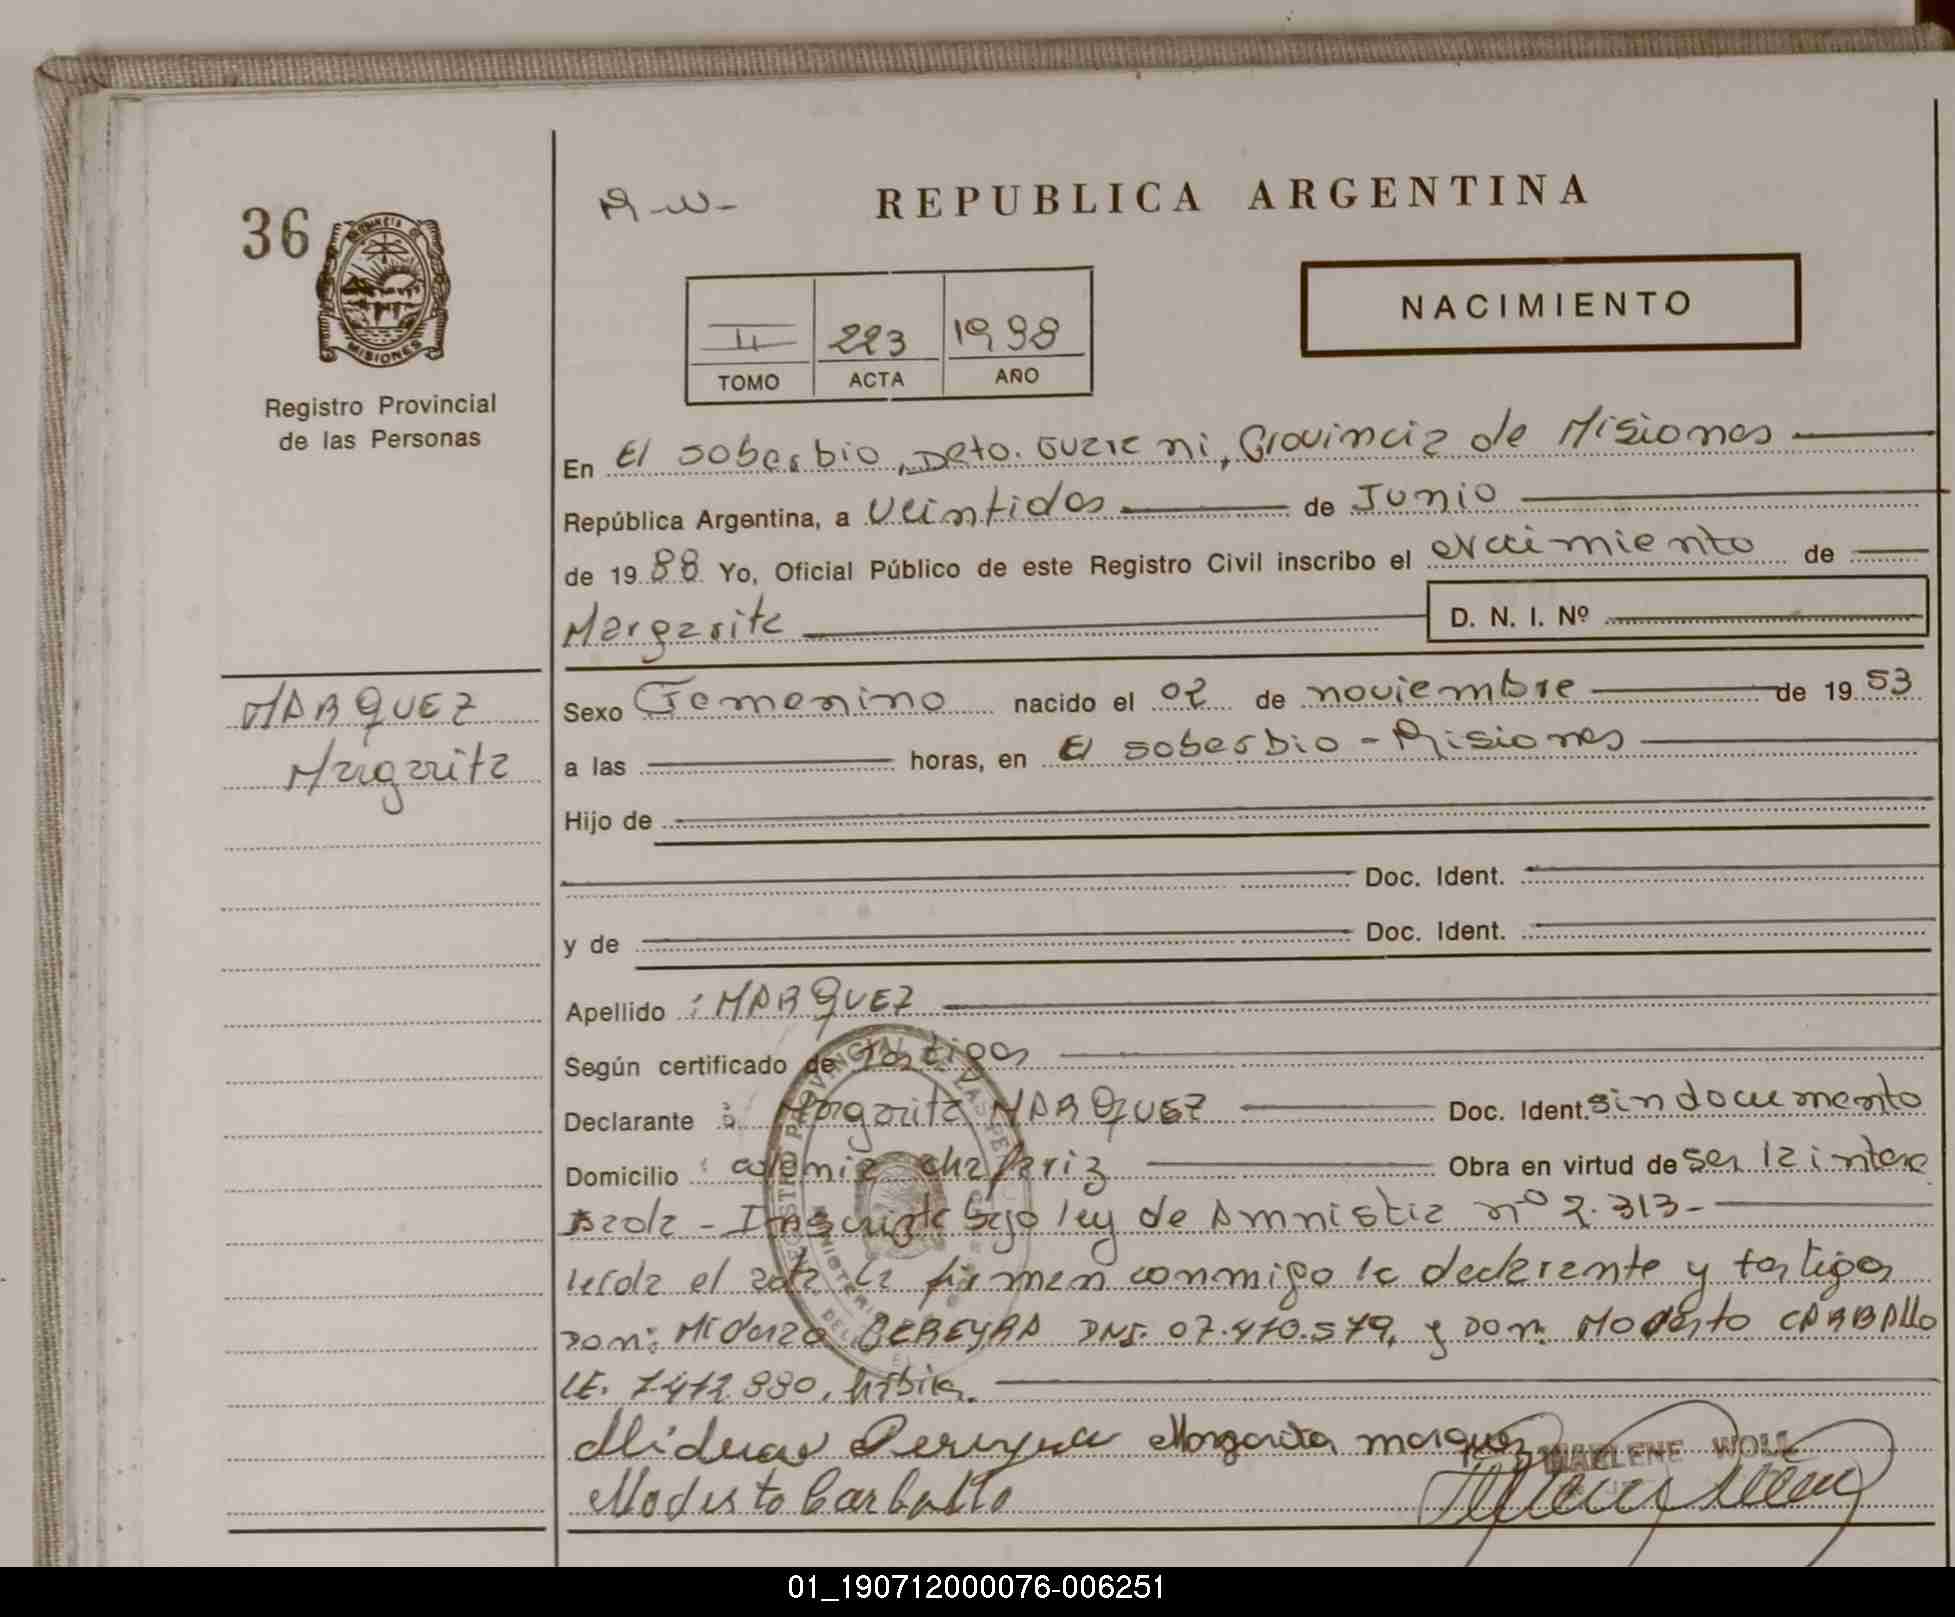 36
PROVINCIA DE
MISIONES
Registro Provincial
de las Personas
REPUBLICA ARGENTINA
II 223 1988
TOMO ACTA AÑO
NACIMIENTO
En El Soberbio, Dpto. Guarani, Provincia de Misiones
República Argentina, a veintidos de Junio
de 1988 Yo, Oficial Público de este Registro Civil inscribo el nacimiento de
Margarita D. N. I. Nº
MARQUEZ
Margarita
Sexo Femenino nacido el 02 de noviembre de 1953
a las horas, en El Soberbio - Misiones
Hijo de
Doc. Ident.
y de Doc. Ident.
Apellido : MARQUEZ
Según certificado de testigos
Declarante : Margarita MARQUEZ Doc. Ident. sin documento
Domicilio : colonia chafariz Obra en virtud de ser la intere
sada - Inscripta bajo ley de Amnistia nº 2.313-
leída el acta la firman conmigo la declarante y testigos
Don: PEREYRA DNI. 07.470.579, y Don. Modesto CARBALLO
LE. 7.472.880, hábiles.
Pereyra Margarita marquez
MARLENE WOLL
Modesto Carballo
01_190712000076-006251